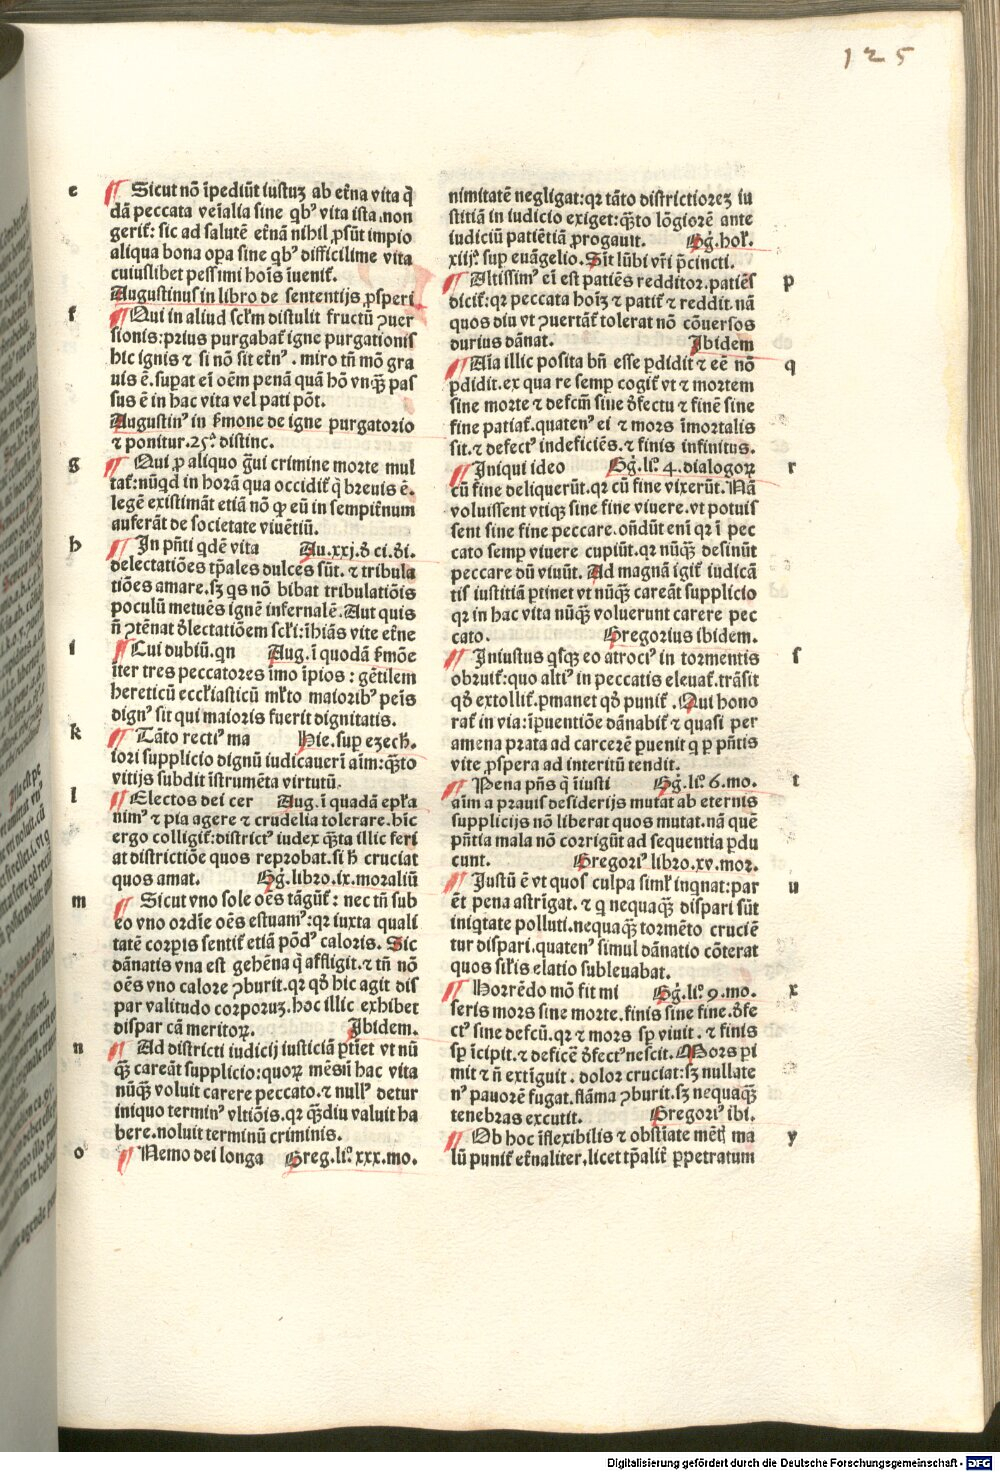 125
e ¶ Sicut nō īpediūt iustuȝ ab et̄na vita q̄
dā peccata venīalia sine qbꝰ vita ista .non
gerit̄: sic ad salutē et̄nā nihil ꝓsūt impio
aliqua bona opa sine qbꝰ difficilime vita
cuiuslibet pessimi hoīs īuenit̄.
Augustinus in libro de sententijs ꝓsperi
f ¶ Qui in aliud scl̄m distulit fructū ꝯuer
sionis: prius purgabat̄ igne purgationis
hic ignis ⁊ si nō sit et̄nꝰ . miro tn̄ mō gra
uis ē. supat eī oēm penā quā hō vnqꝫ pas
sus ē in hac vita vel pati pōt.
Augustinꝰ in ẜmone de igne purgatorio
⁊ ponitur .25. distinc.
g ¶ Qui ꝓ aliquo ḡui crimine morte mul
tat̄: nūqd in horā qua occidit̄ q̄ breuis ē.
legē existimāt etiā nō ꝙ eū in sempit̄num
auferāt de societate viuētiū.
h ¶ In pn̄ti qdē vita Au.xxj.đ ci.đi.
delectatiōes tp̄ales dulces sūt. ⁊ tribula
tiōes amare. sȝ qs nō bibat tribulatiōis
poculū metuēs ignē infernalē. Aut quis
n̄ ꝯtēnat đlectatiōem scl̄i: īhiās vite et̄ne
i ¶ Cui dubiū. qn Aug. ī quodā ẜmōe
īter tres peccatores īmo īpios : gētilem
hereticū eccl̄iasticū ml̄to maioribꝰ peīs
dignꝰ sit qui maioris fuerit dignitatis.
k ¶ Tāto rectiꝰ ma Hie. sup ezech̄.
iori supplicio dignū iudicauerī aīm: qꝫto
vitijs subdit īstrumēta virtutū.
l ¶ Electos dei cer Aug. ī quadā epl̄a
nimꝰ ⁊ pia agere ⁊ crudelia tolerare. hīc
ergo colligit̄: districtꝰ iudex qꝫta illic feri
at districtiōe quos reprobat. si h̄ cruciat
quos amat. Gḡ. libro .ix. moraliū
m ¶ Sicut vno sole oēs tāgūt̄ : nec tn̄ sub
eo vno ordīe oēs estuamꝰ: qr iuxta quali
tatē corpis sentit̄ etiā pōdꝰ caloris. Sic
dānatis vna est gehēna q̄ affligit. ⁊ tn̄ nō
oēs vno calore ꝯburit. qr qđ hic agit dis
par valitudo corporuȝ. hoc illic exhibet
dispar cā meritoꝝ. Ibidem.
n ¶ Ad districti iudicij iusticiā ꝑtīet vt nū
qꝫ careāt supplicio: quoꝝ mēs ī hac vita
nūqꝫ voluit carere peccato. ⁊ nullꝰ detur
iniquo terminꝰ vltiōis. qr qꝫdiu valuit ha
bere. noluit terminū criminis.
o ¶ Nemo dei longa Greg. li. xxx. mo.
nimitatē negligat: qr tāto districtioreȝ iu
stitiā in iudicio exiget: qꝫto lōgiorē ante
iudiciū patiētiā ꝓrogauit. Gḡ. hol̄.
xiij. sup euāgelio. Sīt lūbi vr̄i p̄cincti.
p ¶ Altissimꝰ eī est patiēs redditor. patiēs
dicit̄: qr peccata hoīȝ ⁊ patit̄ ⁊ reddit. nā
quos diu vt ꝯuertāt̄ tolerat nō cōuersos
durius dānat. Ibidem
q ¶ Aīa illic posita bn̄ esse ꝑdidit ⁊ eē nō
ꝑdidit. ex qua re semp cogit̄ vt ⁊ mortem
sine morte ⁊ defcm̄ sine đfectu ⁊ finē sine
fine patiat̄. quatenꝰ ei ⁊ mors īmortalis
sit. ⁊ defectꝰ indeficiēs. ⁊ finis infinitus.
r ¶ Iniqui ideo Gḡ. li. 4. dialogoꝝ
cū fine deliquerūt. qr cū fine vixerūt. Nā
voluissent vtiqꝫ sine fine viuere. vt potuis
sent sine fine peccare. on̄dūt enī qr ī pec
cato semp viuere cupiūt. qr nūqꝫ desinūt
peccare dū viuūt. Ad magnā igit̄ iudicā
tis iustitiā ꝑtinet vt nūqꝫ careāt supplicio
qr in hac vita nūqꝫ voluerunt carere pec
cato. Gregorius ibidem.
s ¶ Iniustus qsqꝫ eo atrociꝰ in tormentis
obruit̄: quo altiꝰ in peccatis eleuat̄. trāsit
qđ extollit̄. ꝑmanet qđ punit̄ . Qui hono
rat̄ in via: īꝑuentiōe dānabit̄ ⁊ quasi per
amena prata ad carcerē ꝑuenit q ꝑ pn̄tis
vite ꝓspera ad interitū tendit.
t ¶ Pena pn̄s q̄ iusti Gḡ. li. 6. mo.
aīm a prauis desiderijs mutat ab eternis
supplicijs nō liberat quos mutat. nā quē
pn̄tia mala nō corrigūt ad sequentia ꝑdu
cunt. Gregoriꝰ libro .xv. mor.
u ¶ Justū ē vt quos culpa siml̄ inqnat: par
ēt pena astrīgat. ⁊ q nequaqꝫ dispari sūt
iniqtate polluti. nequaqꝫ tormēto cruciē
tur dispari. quatenꝰ simul dānatio cōterat
quos sil̄is elatio subleuabat.
x ¶ Horrēdo mō fit mi Gḡ. li. 9. mo.
seris mors sine morte. finis sine fine. đfe
ctꝰ sine defcū. qr ⁊ mors sp̄ viuit. ⁊ finis
sp̄ īcipit. ⁊ deficē đfectꝰ nescit. Mors pi
mit ⁊ n̄ extīguit . dolor cruciat: sȝ nullate
nꝰ pauorē fugat. flāma ꝯburit. sȝ nequaqꝫ
tenebras excutit. Gregoriꝰ ibi.
y ¶ Ob hoc īflexibilis ⁊ obstīate mēt ma
lū punit̄ et̄naliter. licet tp̄alit̄ ꝑpetratum
Digitalisierung gefördert durch die Deutsche Forschungsgemeinschaft - DFG